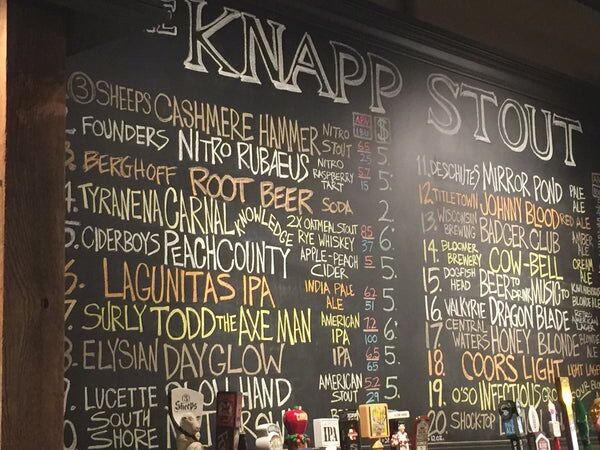 THE KNAPP STOUT
3 SHEEPS CASHMERE HAMMER NITRO STOUT 6.5 5.
FOUNDERS NITRO RUBAEUS NITRO RASPBERRY TART 5.7 15 5.
3. BERGHOFF ROOT BEER SODA 2.
4. TYRANENA CARNAL KNOWLEDGE 2X OATMEAL STOUT RYE WHISKEY 8.5 37 6.
5. CIDERBOYS PEACH COUNTY APPLE-PEACH CIDER 5 5.
6. LAGUNITAS IPA INDIA PALE ALE 6.2 51 5.
7. SURLY TODD THE AXE MAN AMERICAN IPA 7.2 6.
8. ELYSIAN DAYGLOW IPA 5.
LUCETTE SLOW HAND AMERICAN STOUT 5.2 29 5.
SOUTH SHORE
11. DESCHUTES MIRROR POND PALE ALE
12. TITLETOWN JOHNNY BLOOD RED ALE
13. WISCONSIN BREWING BADGER CLUB AMBER ALE
14. BLOOMER BREWERY COW-BELL CREAM ALE
15. DOGFISH HEAD BEER TO DRINK MUSIC TO
16. VALKYRIE DRAGON BLADE
17. CENTRAL WATERS HONEY BLONDE BLONDE ALE
18. COORS LIGHT LIGHT LAGER
19. O'SO INFECTIOUS
20. SHOCKTOP
3 SHEEPS
IPA